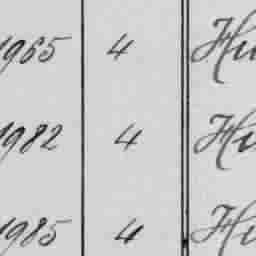 1965 4 Hu
1982 4 Hu
1985 4 Hu